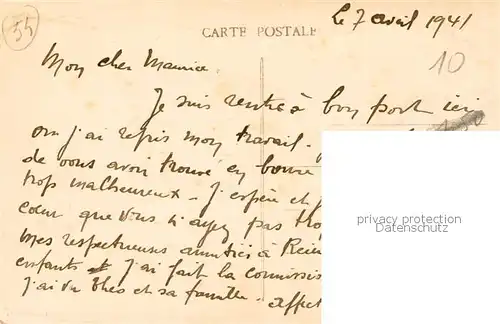 55
Le 7 avril 1941
CARTE POSTALE
10
Mon cher Maurice.
Je suis rentré à bon port ici
où j'ai repris mon travail.
de vous avoir trouvé en bonne
trop malheureux - J'espère et
cœur que vous n'ayez pas
mes respectueuses amitiés à
enfants J'ai fait la
J'ai vu Théo et sa famille.
privacy protection
Datenschutz